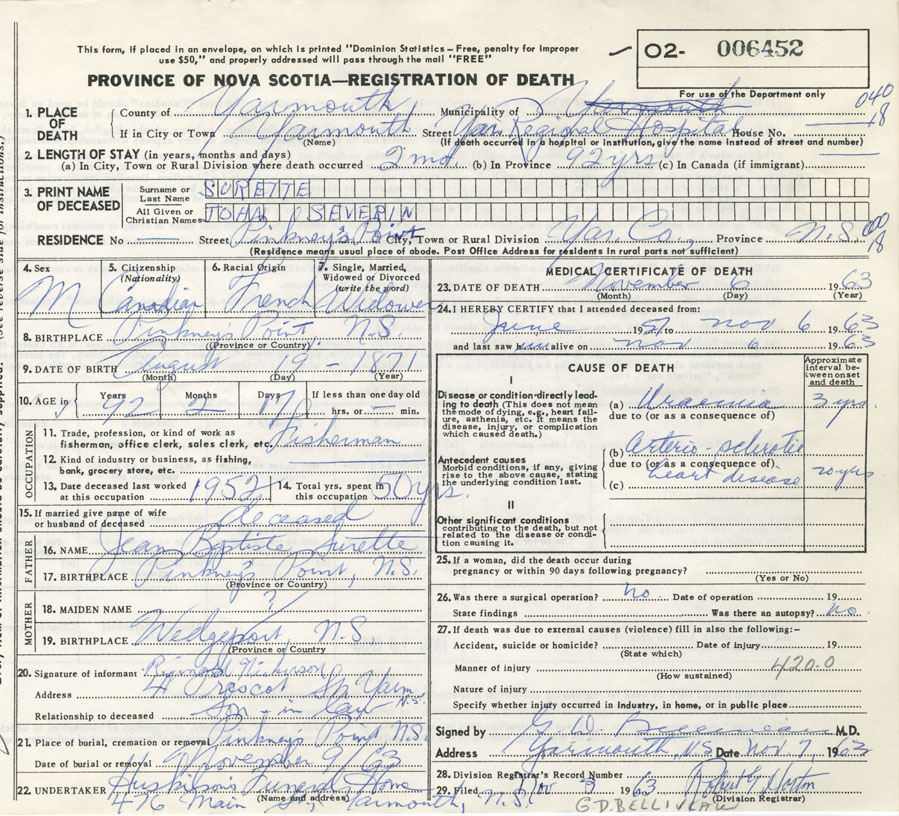 This form, if placed in an envelope, on which is printed "Dominion Statistics—Free, penalty for improper
use $50," and properly addressed will pass through the mail "FREE"
02- 006452
PROVINCE OF NOVA SCOTIA—REGISTRATION OF DEATH
For use of the Department only
040
18
1. PLACE OF DEATH County of Yarmouth Municipality of Yarmouth
If in City or Town Yarmouth Street Yar. Regional Hospital House No.
(Name) (If death occurred in a hospital or institution, give the name instead of street and number)
2. LENGTH OF STAY (in years, months and days)
(a) In City, Town or Rural Division where death occurred 2 md. (b) In Province 92 yrs (c) In Canada (if immigrant)
3. PRINT NAME OF DECEASED Surname or Last Name SURETTE
All Given or Christian Names JOHN SEVERIN
RESIDENCE No — Street Pinkney's Point City, Town or Rural Division Yar. Co. Province N.S.
00
18
(Residence means usual place of abode. Post Office Address for residents in rural parts not sufficient)
4. Sex M
5. Citizenship (Nationality) Canadian
6. Racial Origin French
7. Single, Married, Widowed or Divorced (write the word) Widower
8. BIRTHPLACE Pinkney's Point, N.S.
(Province or Country)
9. DATE OF BIRTH August 19 - 1871
(Month) (Day) (Year)
10. AGE in Years 92 Months 2 Days 17 If less than one day old
hrs. or — min.
OCCUPATION
11. Trade, profession, or kind of work as
fisherman, office clerk, sales clerk, etc. Fisherman
12. Kind of industry or business, as fishing,
bank, grocery store, etc.
13. Date deceased last worked at this occupation 1952
14. Total yrs. spent in this occupation 50 yrs.
15. If married give name of wife
or husband of deceased deceased
FATHER
16. NAME Jean Baptiste Surette
17. BIRTHPLACE Pinkney's Point, N.S.
(Province or Country)
MOTHER
18. MAIDEN NAME ?
19. BIRTHPLACE Wedgeport, N.S.
(Province or Country
20. Signature of informant Raymond Nickerson
Address 4 Prescot St. Yarm N.S.
Relationship to deceased Son-in law
21. Place of burial, cremation or removal Pinkney's Point N.S.
Date of burial or removal November 9/63
22. UNDERTAKER Huskilson's Funeral Home
(Name and address)
476 Main St., Yarmouth, N.S.
MEDICAL CERTIFICATE OF DEATH
23. DATE OF DEATH November 6 1963
(Month) (Day) (Year)
24. I HEREBY CERTIFY that I attended deceased from:
June 19 to Nov 6 1963
and last saw him alive on Nov 6 1963
CAUSE OF DEATH
Approximate interval between onset and death
I
Disease or condition directly leading to death (This does not mean the mode of dying, e.g., heart failure, asthenia, etc. It means the disease, injury, or complication which caused death.)
(a) Uraemia 3 yrs.
due to (or as a consequence of)
Antecedent causes
Morbid conditions, if any, giving rise to the above cause, stating the underlying condition last.
(b) Arterio-sclerotic
due to (or as a consequence of)
(c) heart disease 20 yrs
II
Other significant conditions
contributing to the death, but not related to the disease or condition causing it.
25. If a woman, did the death occur during
pregnancy or within 90 days following pregnancy?
(Yes or No)
26. Was there a surgical operation? No Date of operation 19
State findings Was there an autopsy? No.
27. If death was due to external causes (violence) fill in also the following:—
Accident, suicide or homicide? Date of injury 19
(State which)
Manner of injury 420.0
(How sustained)
Nature of injury
Specify whether injury occurred in industry, in home, or in public place
Signed by G. D. Belliveau M.D.
Address Yarmouth, NS Date Nov 7, 1963
28. Division Registrar's Record Number
29. Filed Nov 1963 Robert G Horton
G.D. BELLIVEAU (Division Registrar)